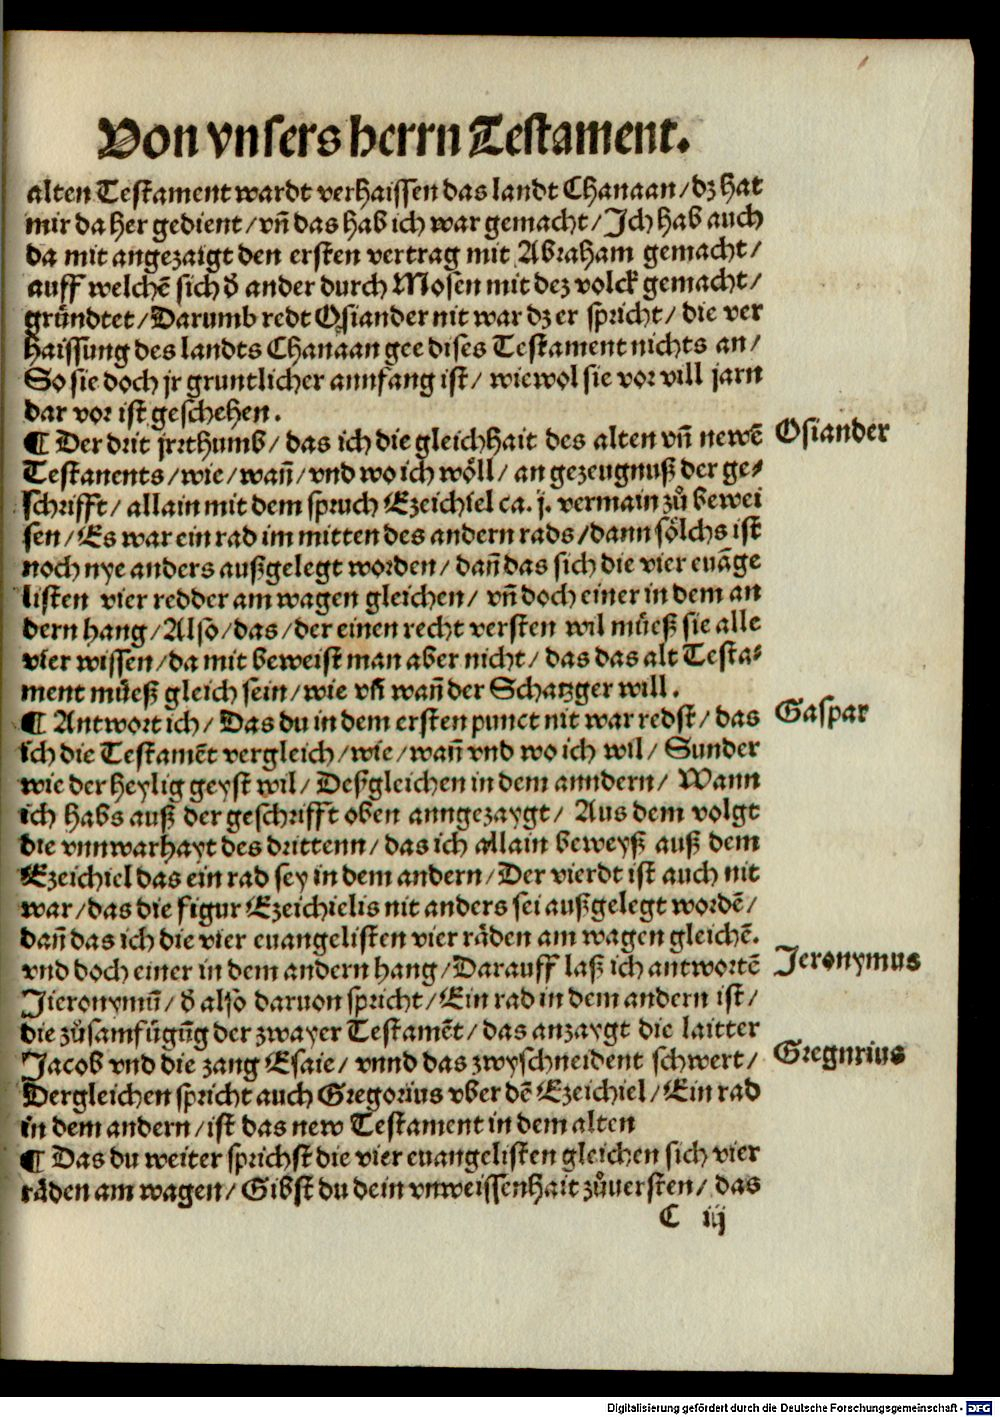 Von vnsers herrn Testament.
alten Testament wardt verhaissen das landt Chanaan/ dz hat
mir da her gedient/ vn̄ das hab ich war gemacht/ Ich hab auch
da mit angezaigt den ersten vertrag mit Abraham gemacht/
auff welchē sich d̄ ander durch Mosen mit dez volck gemacht/
gründtet/ Darumb redt Osiander nit war dz er spricht/ die ver
haissung des landts Chanaan gee dises Testament nichts an/
So sie doch jr gruntlicher annfang ist/ wiewol sie vor vill jarn
dar vor ist geschehen.
¶ Der drit jrrthumb/ das ich die gleichhait des alten vn̄ newē
Osiander
Testanents/ wie/ wan̄/ vnd wo ich wöll/ an gezeugnuß der ge⸗
schrifft/ allain mit dem spruch Ezeichiel ca. j. vermain zů bewei
sen/ Es war ein rad im mitten des andern rads/ dann sölchs ist
noch nye anders außgelegt worden/ dan̄ das sich die vier euāge
listen vier redder am wagen gleichen/ vn̄ doch einer in dem an
dern hang/ Also/ das/ der einen recht versten wil müeß sie alle
vier wissen/ da mit beweist man aber nicht/ das das alt Testa⸗
ment müeß gleich sein/ wie vn̄ wan̄ der Schatzger will.
¶ Antwort ich/ Das du in dem ersten punct nit war redst/ das
Gaspar
ich die Testamēt vergleich/ wie/ wan̄ vnd wo ich wil/ Sunder
wie der heylig geyst wil/ Deßgleichen in dem anndern/ Wann
ich habs auß der geschrifft oben anngezaygt/ Aus dem volgt
die vnnwarhayt des drittenn/ das ich allain beweyß auß dem
Ezeichiel das ein rad sey in dem andern/ Der vierdt ist auch nit
war/ das die figur Ezeichielis nit anders sei außgelegt wordē/
dan̄ das ich die vier euangelisten vier räden am wagen gleichē.
vnd doch einer in dem andern hang/ Darauff laß ich antwortē
Jeronymus
Jieronymū/ d̄ also daruon spricht/ Ein rad in dem andern ist/
die zůsamfügūg der zwayer Testamēt/ das anzaygt die laitter
Jacob vnd die zang Esaie/ vnnd das zwyschneident schwert/
Gregurius
Dergleichen spricht auch Gregorius vber dē Ezeichiel/ Ein rad
in dem andern/ ist das new Testament in dem alten
¶ Das du weiter sprichst die vier euangelisten gleichen sich vier
räden am wagen/ Gibst du dein vnweissenhait zůuersten/ das
C iij
Digitalisierung gefördert durch die Deutsche Forschungsgemeinschaft - DFG